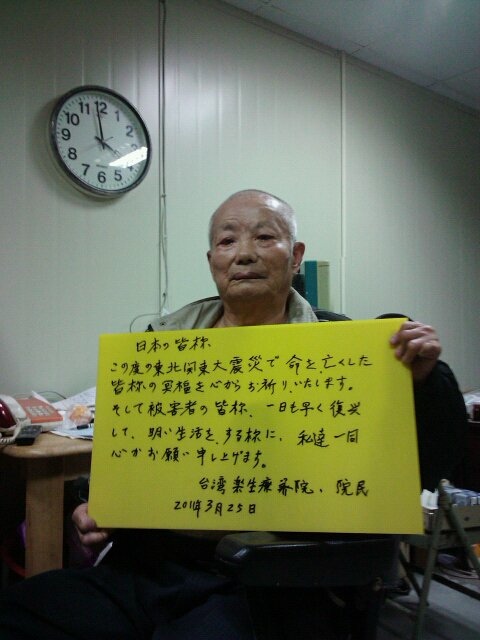 12
1
2
3
4
5
6
7
8
9
10
11
日本の皆称
この度の東北関東大震災で命を亡くした
皆称の冥福を心からお祈りいたします。
そして被害者の皆称、一日も早く復兴
して、明い生活をする称に、私達一同
心からお願い申し上げます。
台湾楽生療养院、院民
2011年3月25日